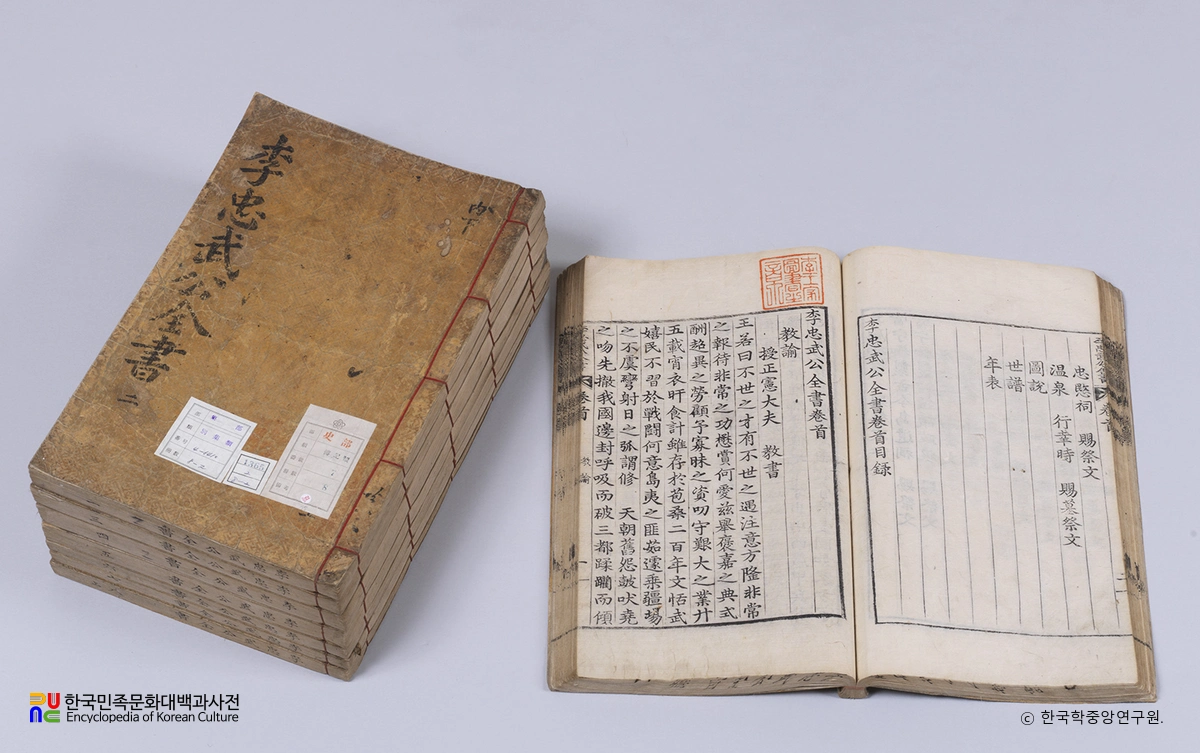 李忠武公全書 二
史部
忠愍祠 賜祭文
溫泉 行幸時 賜墓祭文
圖說
世譜
年表
李忠武公全書卷首目錄
李忠武公全書卷首
教諭
授正憲大夫 教書
王若曰不世之才有不世之遇注意方隆非常
之報待非常之功懋賞何愛玆舉褒嘉之典式
酬超異之勞顧予寡昧之資叨守艱大之業廿
五載宵衣旰食計雖存於苞桑二百年文恬武
嬉民不習於戰鬪何意島夷之匪茹遽乗疆埸
之不虞彎射日之弧謂修 天朝舊怨皷吠堯
之吻先撤我國邊封呼吸而破三都蹂躪而傾
卷首 教諭
한국민족문화대백과사전
Encyclopedia of Korean Culture
ⓒ 한국학중앙연구원.